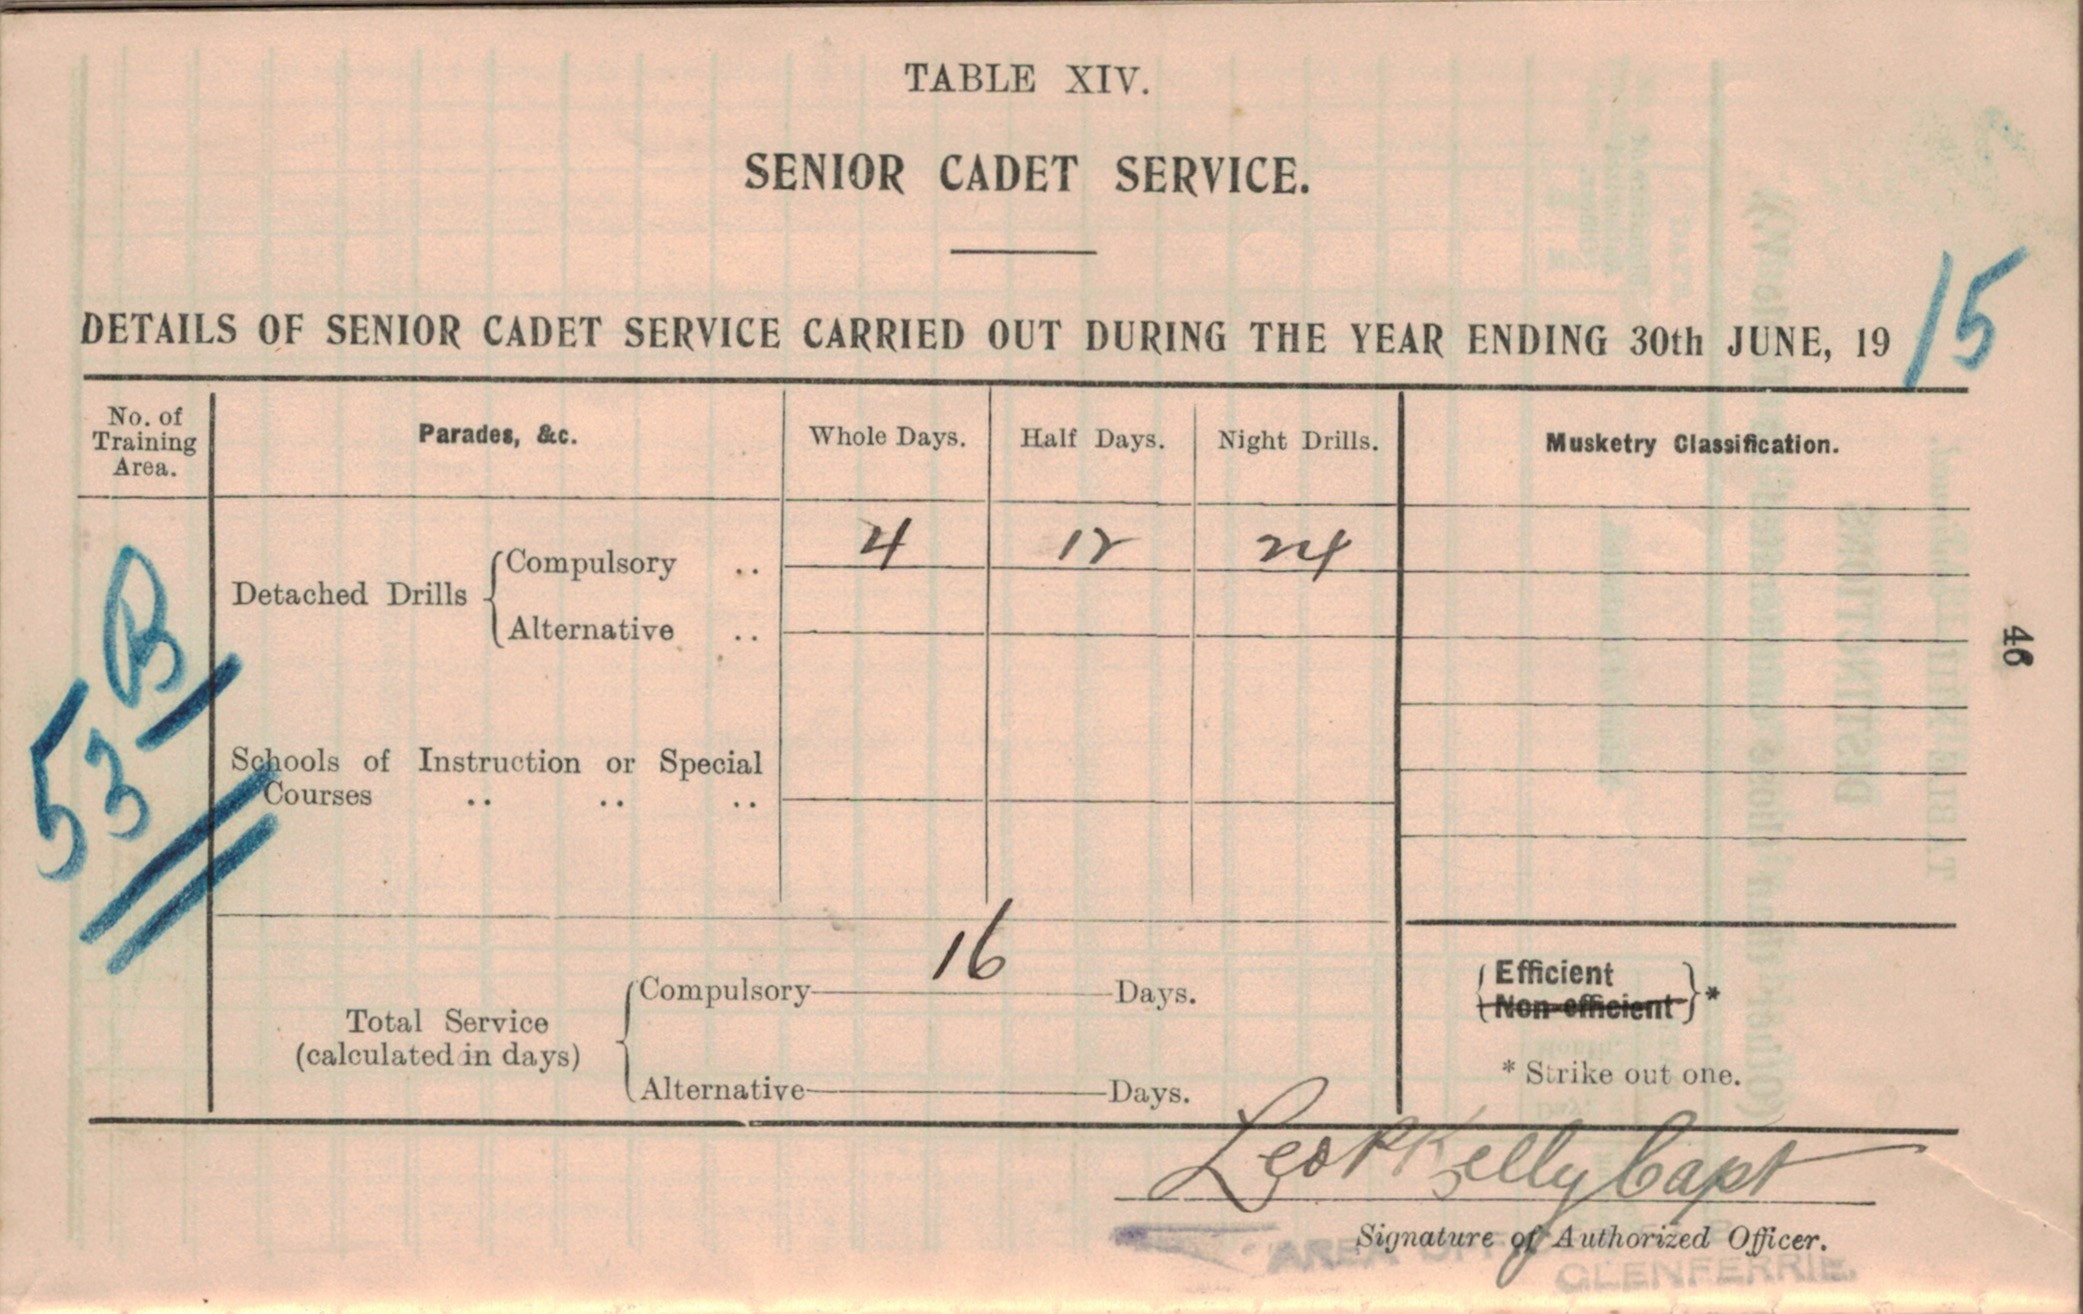 TABLE XIV.
SENIOR CADET SERVICE.
DETAILS OF SENIOR CADET SERVICE CARRIED OUT DURING THE YEAR ENDING 30th JUNE, 19 15
No. of Training Area. Parades, &c. Whole Days. Half Days. Night Drills. Musketry Classification.
53B
Detached Drills Compulsory .. 4 12 24
Alternative ..
46
Schools of Instruction or Special
Courses .. .. ..
Total Service
(calculated in days)
Compulsory 16 Days.
Alternative Days.
Efficient
Non-efficient *
* Strike out one.
Leo P Kelly Capt
Signature of Authorized Officer.
AREA
GLENFERRIE.